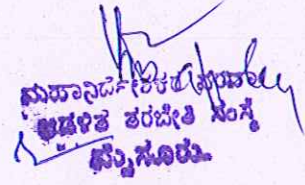 ಮಹಾನಿರ್ದೇಶಕರ ಪರವಾಗಿ
ಆಡಳಿತ ತರಬೇತಿ ಸಂಸ್ಥೆ
ಮೈಸೂರು